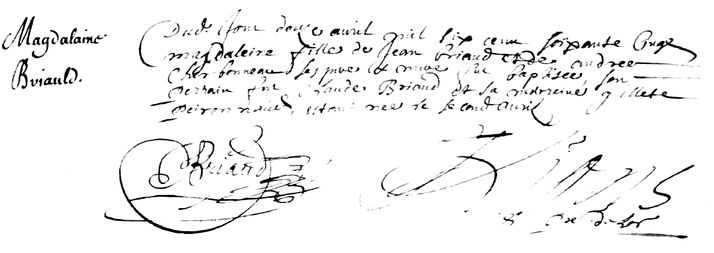 Magdalaine
Briauld.
Dud. Jour douze avril mil six cens soixante cinqz
magdaleine fille de Jean Briaud et de andree
Cherbonneau ses pere et mere fut baptisée, son
Parrain fut Claude Briaud et sa marraine
estant née le second avril
CBriaud